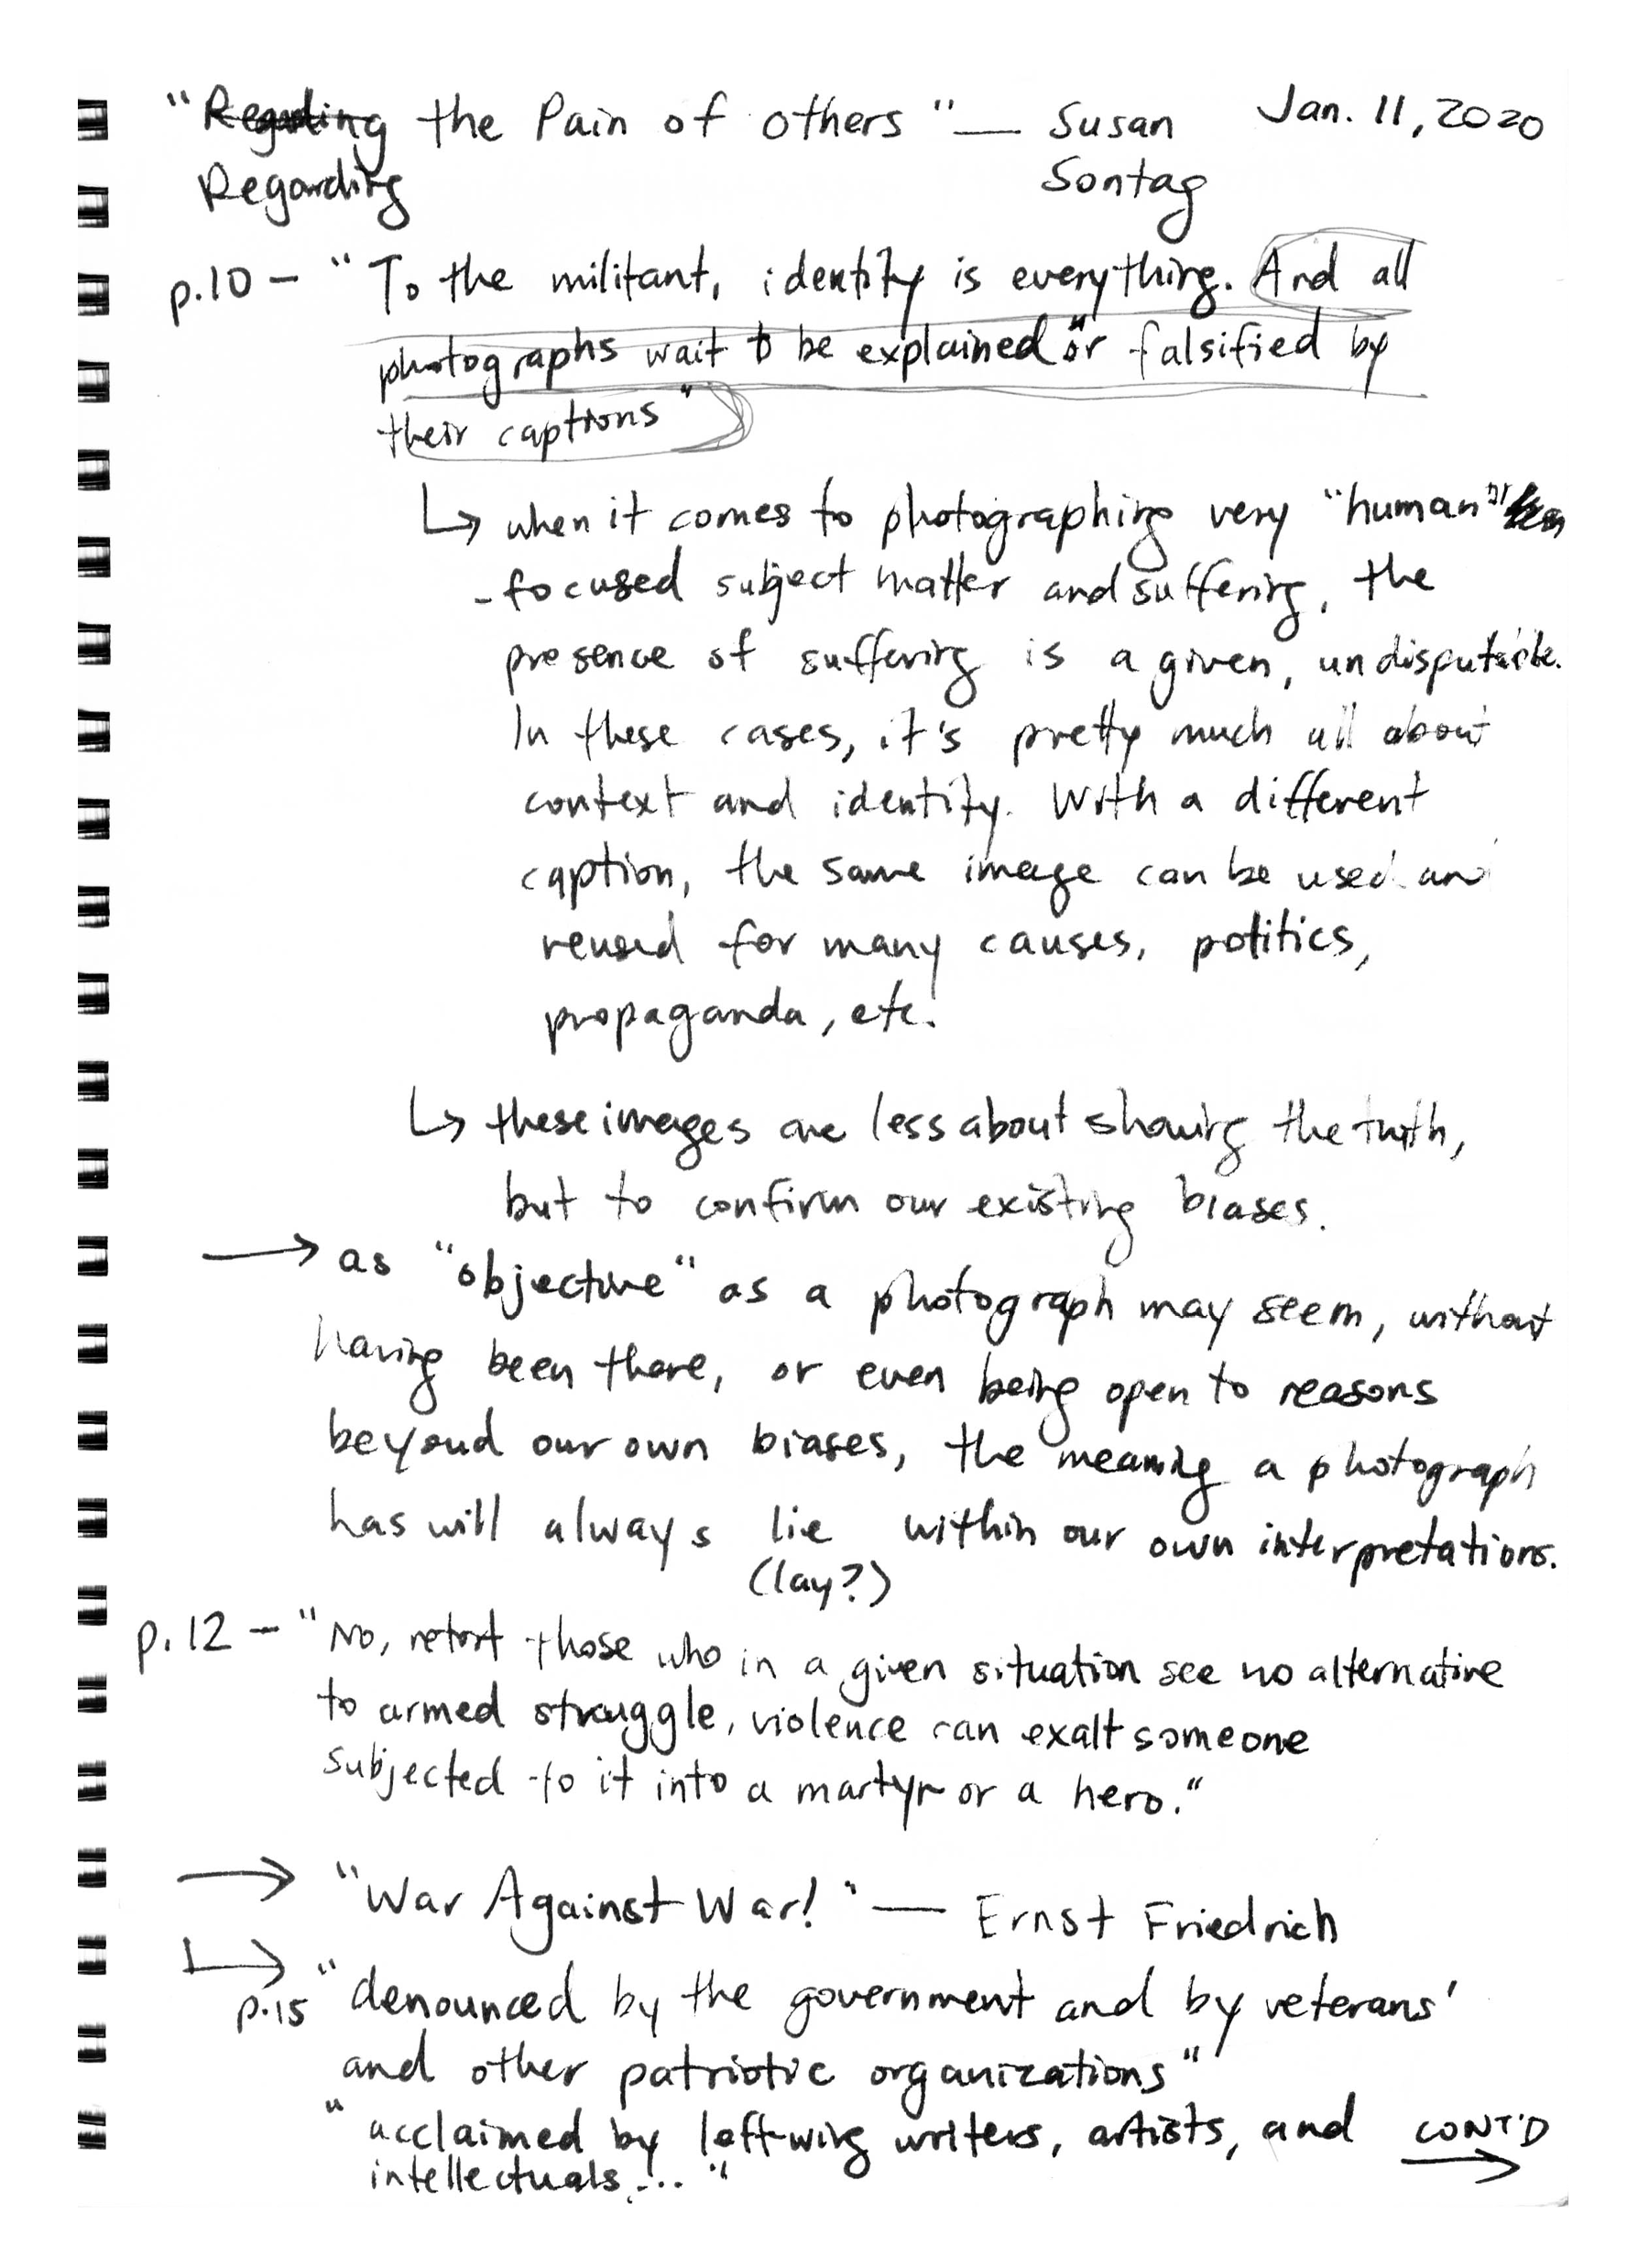 "Regarding the Pain of others" — Susan Jan. 11, 2020
Regarding Sontag
p.10 — "To the militant, identity is everything. And all
photographs wait to be explained "or falsified by
their captions"
↳ when it comes to photographing very "human"
-focused subject matter and suffering, the
presence of suffering is a given, undisputable.
In these cases, it's pretty much all about
context and identity. With a different
caption, the same image can be used and
reused for many causes, politics,
propaganda, etc.
↳ these images are less about showing the truth,
but to confirm our existing biases.
→ as "objective" as a photograph may seem, without
having been there, or even being open to reasons
beyond our own biases, the meaning a photograph
has will always lie within our own interpretations.
(lay?)
p.12 — "No, retort those who in a given situation see no alternative
to armed struggle, violence can exalt someone
subjected to it into a martyr or a hero."
→ "War Against War!" — Ernst Friedrich
↳ "denounced by the government and by veterans'
p.15
and other patriotic organizations"
"acclaimed by left-wing writers, artists, and CONT'D →
intellectuals...."